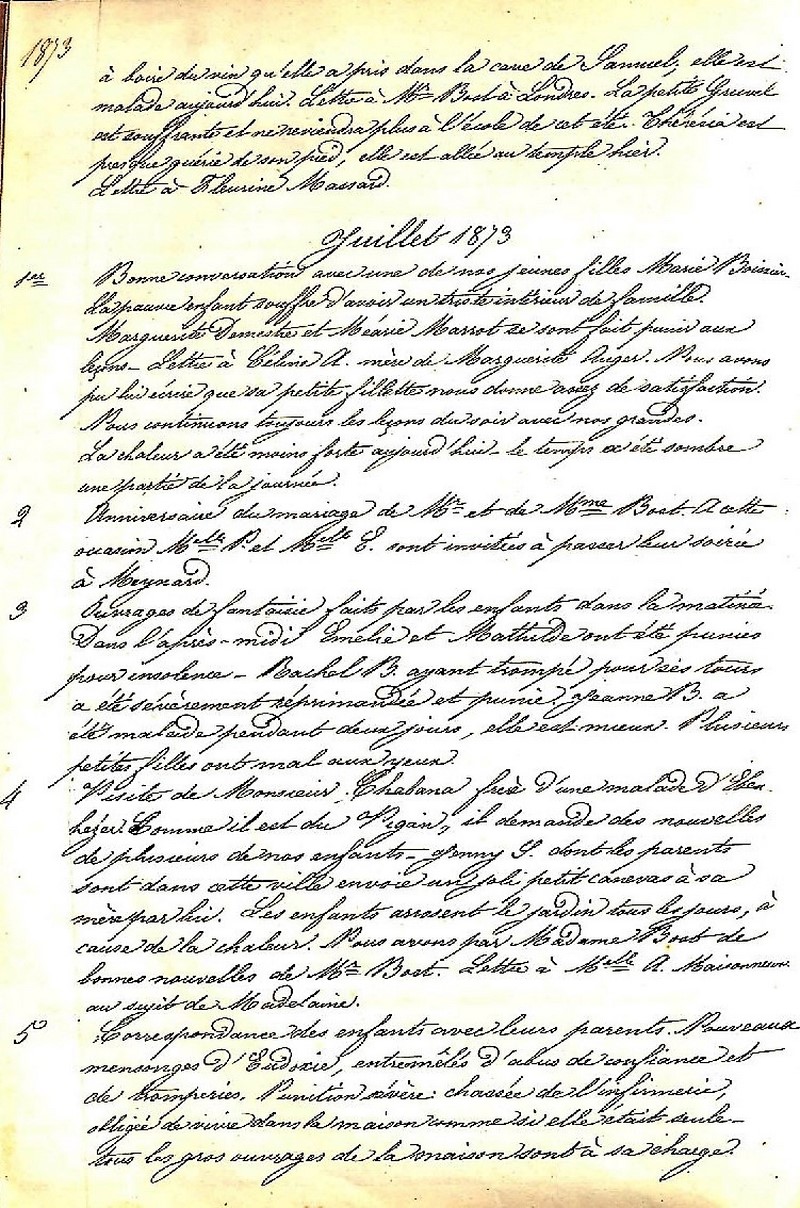 1873
à boire du vin qu'elle a pris dans la cave de Samuel, elle est
malade aujourd'hui. Lettre à Mr Bost à Londres. La petite Gruvel
est souffrante et ne reviendra plus à l'école de cet été. Thérésia est
presque guérie de son pied, elle est allée au temple hier.
Lettre à Fleurine Massard.
Juillet 1873
1er Bonne conversation avec une de nos jeunes filles Marie
La pauvre enfant souffre d'avoir un triste intérieur de famille.
Marguerite Demestre et Méarie Marrot se sont fait punir aux
leçons - Lettre à Céline A. mère de Marguerite Auger. Nous avons
pu lui écrire que sa petite fillette nous donne assez de satisfaction.
Nous continuons toujours les leçons du soir avec nos grandes.
La chaleur a été moins forte aujourd'hui - le temps a été sombre
une partie de la journée.
2 Anniversaire du mariage de Mr et de Mme Bost. A cette
occasion Melle P. et Melle E. sont invitées à passer leur soirée
à Meynard.
3 Ouvrages de fantaisie faits par les enfants dans la matinée.
Dans l'après-midi Emélie et Mathilde ont été punies
pour insolence - Rachel B. ayant trompé pour ses tours
a été sévèrement réprimandée et punie. Jeanne B. a
été malade pendant deux jours, elle est mieux. Plusieurs
petites filles ont mal aux yeux.
4 Visite de Monsieur Chabana frère d'une malade d'Eben-
hézer. Comme il est du Vigan, il demande des nouvelles
de plusieurs de nos enfants - Jenny S. dont les parents
sont dans cette ville envoie un joli petit canevas à sa
mère par lui. Les enfants arrosent le jardin tous les jours, à
cause de la chaleur. Nous avons par Madame Bost de
bonnes nouvelles de Mr Bost. Lettre à Melle A. Maisonneuve
au sujet de Madelaine.
5 Correspondance des enfants avec leurs parents. Nouveaux
mensonges d'Eudoxie, entremêlés d'abus de confiance et
de tromperies. Punition sévère: chassée de l'infirmerie,
obligée de vivre dans la maison comme si elle était seule -
tous les gros ouvrages de la maison sont à sa charge.